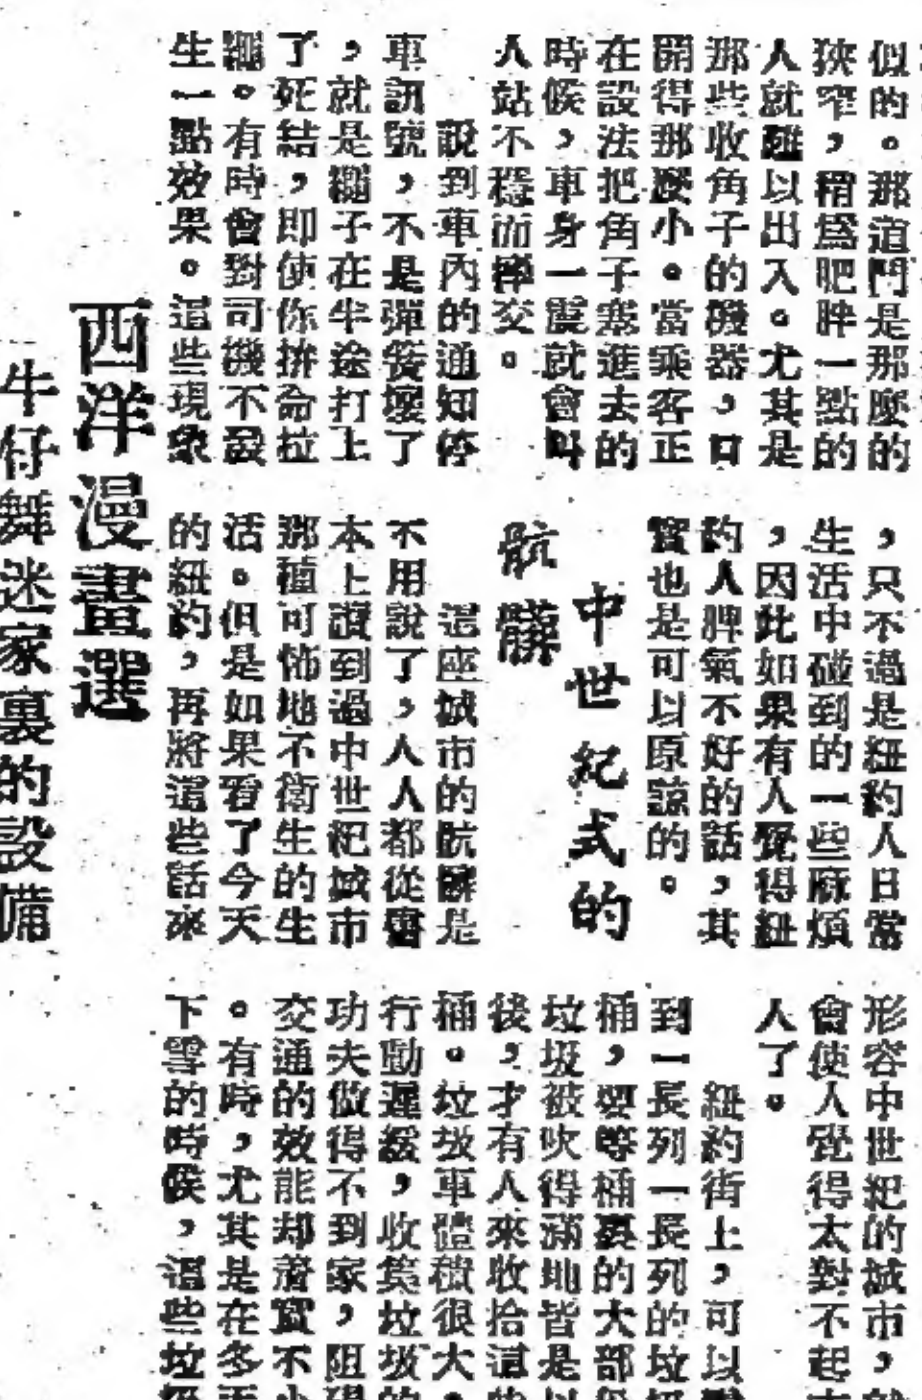 似的。那道門是那麼的
狹窄，稍爲肥胖一點的
人就難以出入。尤其是
那些收角子的機器，口
開得那麼小。當乘客正
在設法把角子塞進去的
時候，車身一震就會叫
人站不穩而摔交。
說到車內的通知停
車訊號，不是彈簧壞了
，就是繩子在半途打上
了死結，即使你拚命拉
繩。有時會對司機不發
生一點效果。這些現象
，只不過是紐約人日常
生活中碰到的一些麻煩
，因此如果有人覺得紐
約人脾氣不好的話，其
實也是可以原諒的。
中世紀式的
骯髒
這座城市的骯髒是
不用說了，人人都從書
本上讀到過中世紀城市
那種可怖地不衛生的生
活。但是如果看了今天
的紐約，再將這些話來
形容中世紀的城市，
會使人覺得太對不起
人了。
紐約街上，可以
到一長列一長列的垃
桶，要等桶裏的大部
垃圾被吹得滿地皆是以
後，才有人來收拾這
桶。垃圾車體積很大，
行動遲緩，收集垃圾的
功夫做得不到家，阻
交通的效能却着實不
。有時，尤其是在冬
下雪的時候，這些垃
西洋漫畫選
牛仔舞迷家裏的設備